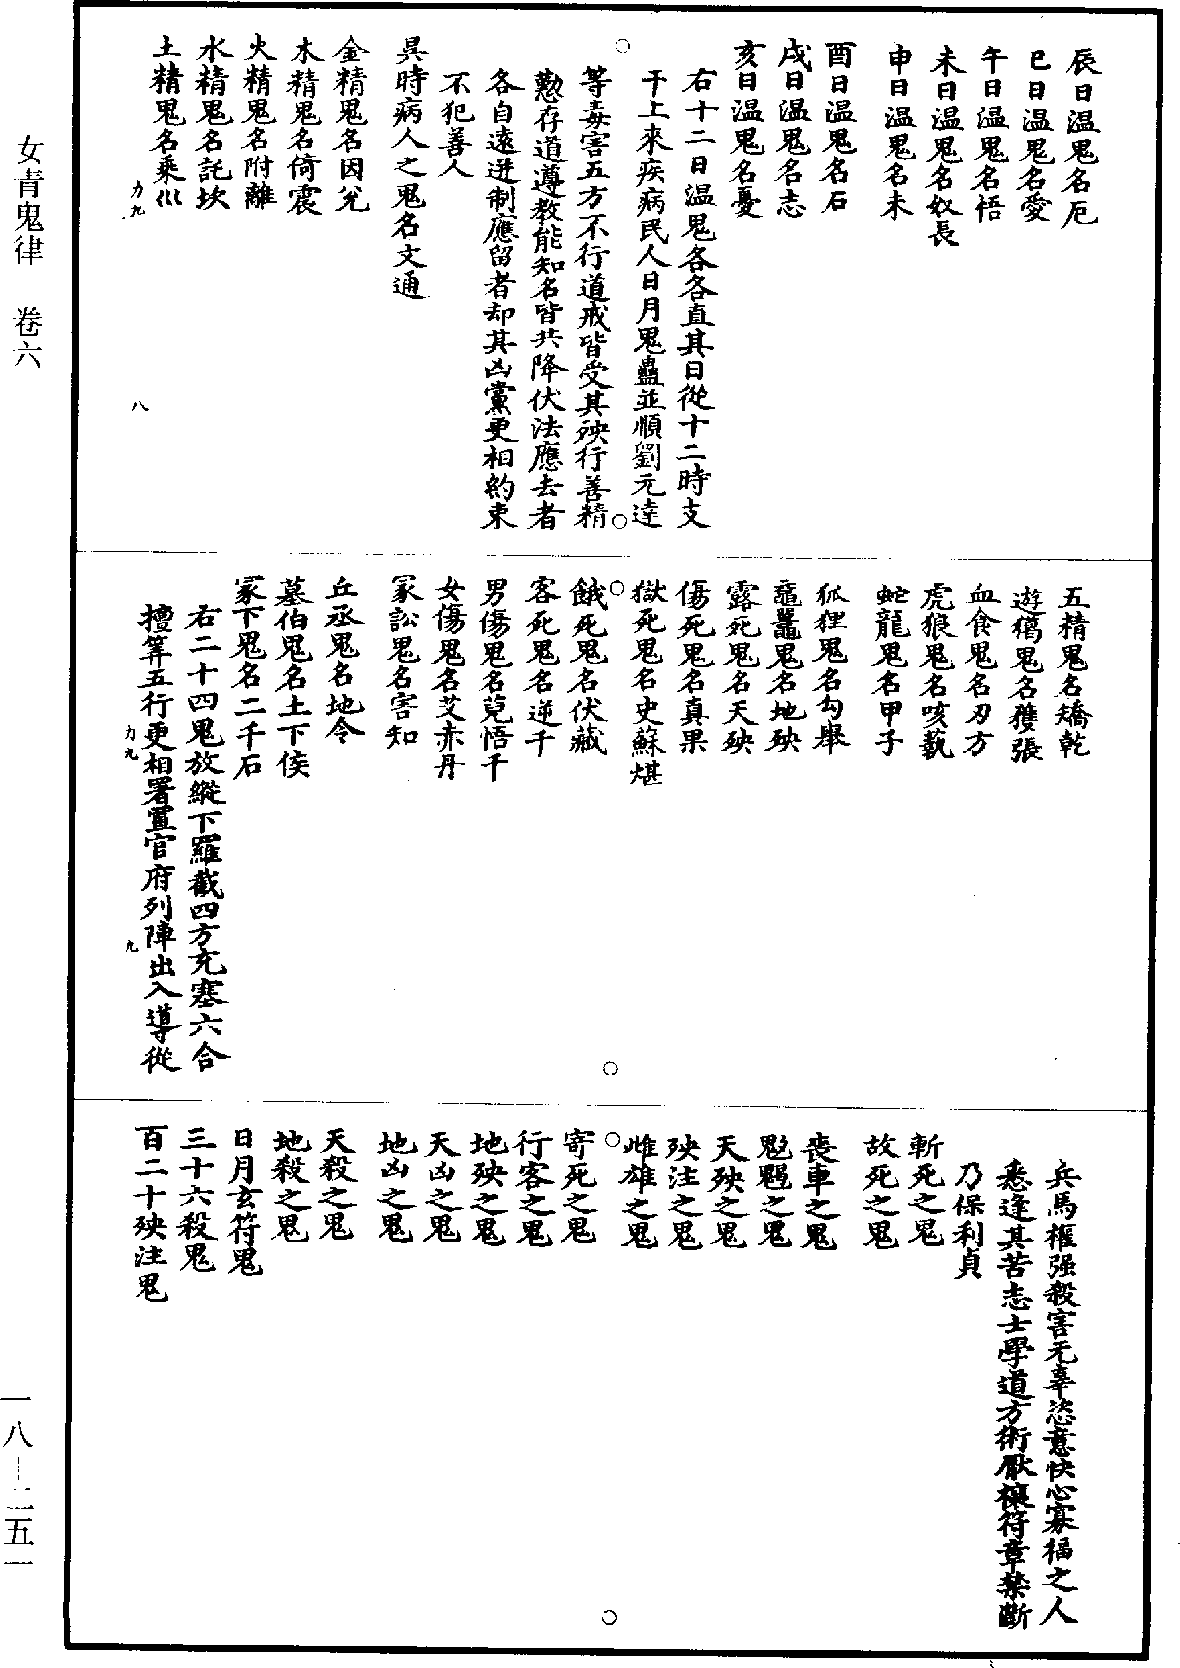 辰日温鬼名厄
巳日温鬼名愛
午日温鬼名悟
未日温鬼名奴長
申日温鬼名未
酉日温鬼名石
戌日温鬼名志
亥日温鬼名憂
右十二日温鬼各各直其日從十二時支
干上來疾病民人日月鬼蠱並順劉元達
等毒害五方不行道戒皆受其殃行善精
懃存道遵教能知名皆共降伏法應去者
各自遠迸制應留者却其凶黨更相約束
不犯善人
異時病人之鬼名文通
金精鬼名因兊
木精鬼名倚震
火精鬼名附離
水精鬼名託坎
土精鬼名乘巛
力九
八
五精鬼名矯乾
遊獦鬼名獲張
血食鬼名刃方
虎狼鬼名咳蓺
蛇龍鬼名甲子
狐狸鬼名勾舉
黿鼉鬼名地殃
露死鬼名天殃
傷死鬼名真果
獄死鬼名史蘇煁
餓死鬼名伏藏
客死鬼名逆千
男傷鬼名莧悟千
女傷鬼名艾赤丹
冢訟鬼名害知
丘丞鬼名地令
墓伯鬼名土下侯
冢下鬼名二千石
右二十四鬼放縱下羅截四方充塞六合
擅筭五行更相署置官府列陣出入導從
力九
九
兵馬權强殺害无辜恣意快心寡福之人
悉逢其苦志士學道方術厭禳符章禁斷
乃保利貞
斬死之鬼
故死之鬼
喪車之鬼
魁魎之鬼
天殃之鬼
殃注之鬼
雌雄之鬼
寄死之鬼
行客之鬼
地殃之鬼
天凶之鬼
地凶之鬼
天殺之鬼
地殺之鬼
日月玄符鬼
三十六殺鬼
百二十殃注鬼
女青鬼律 卷六
一八―二五一